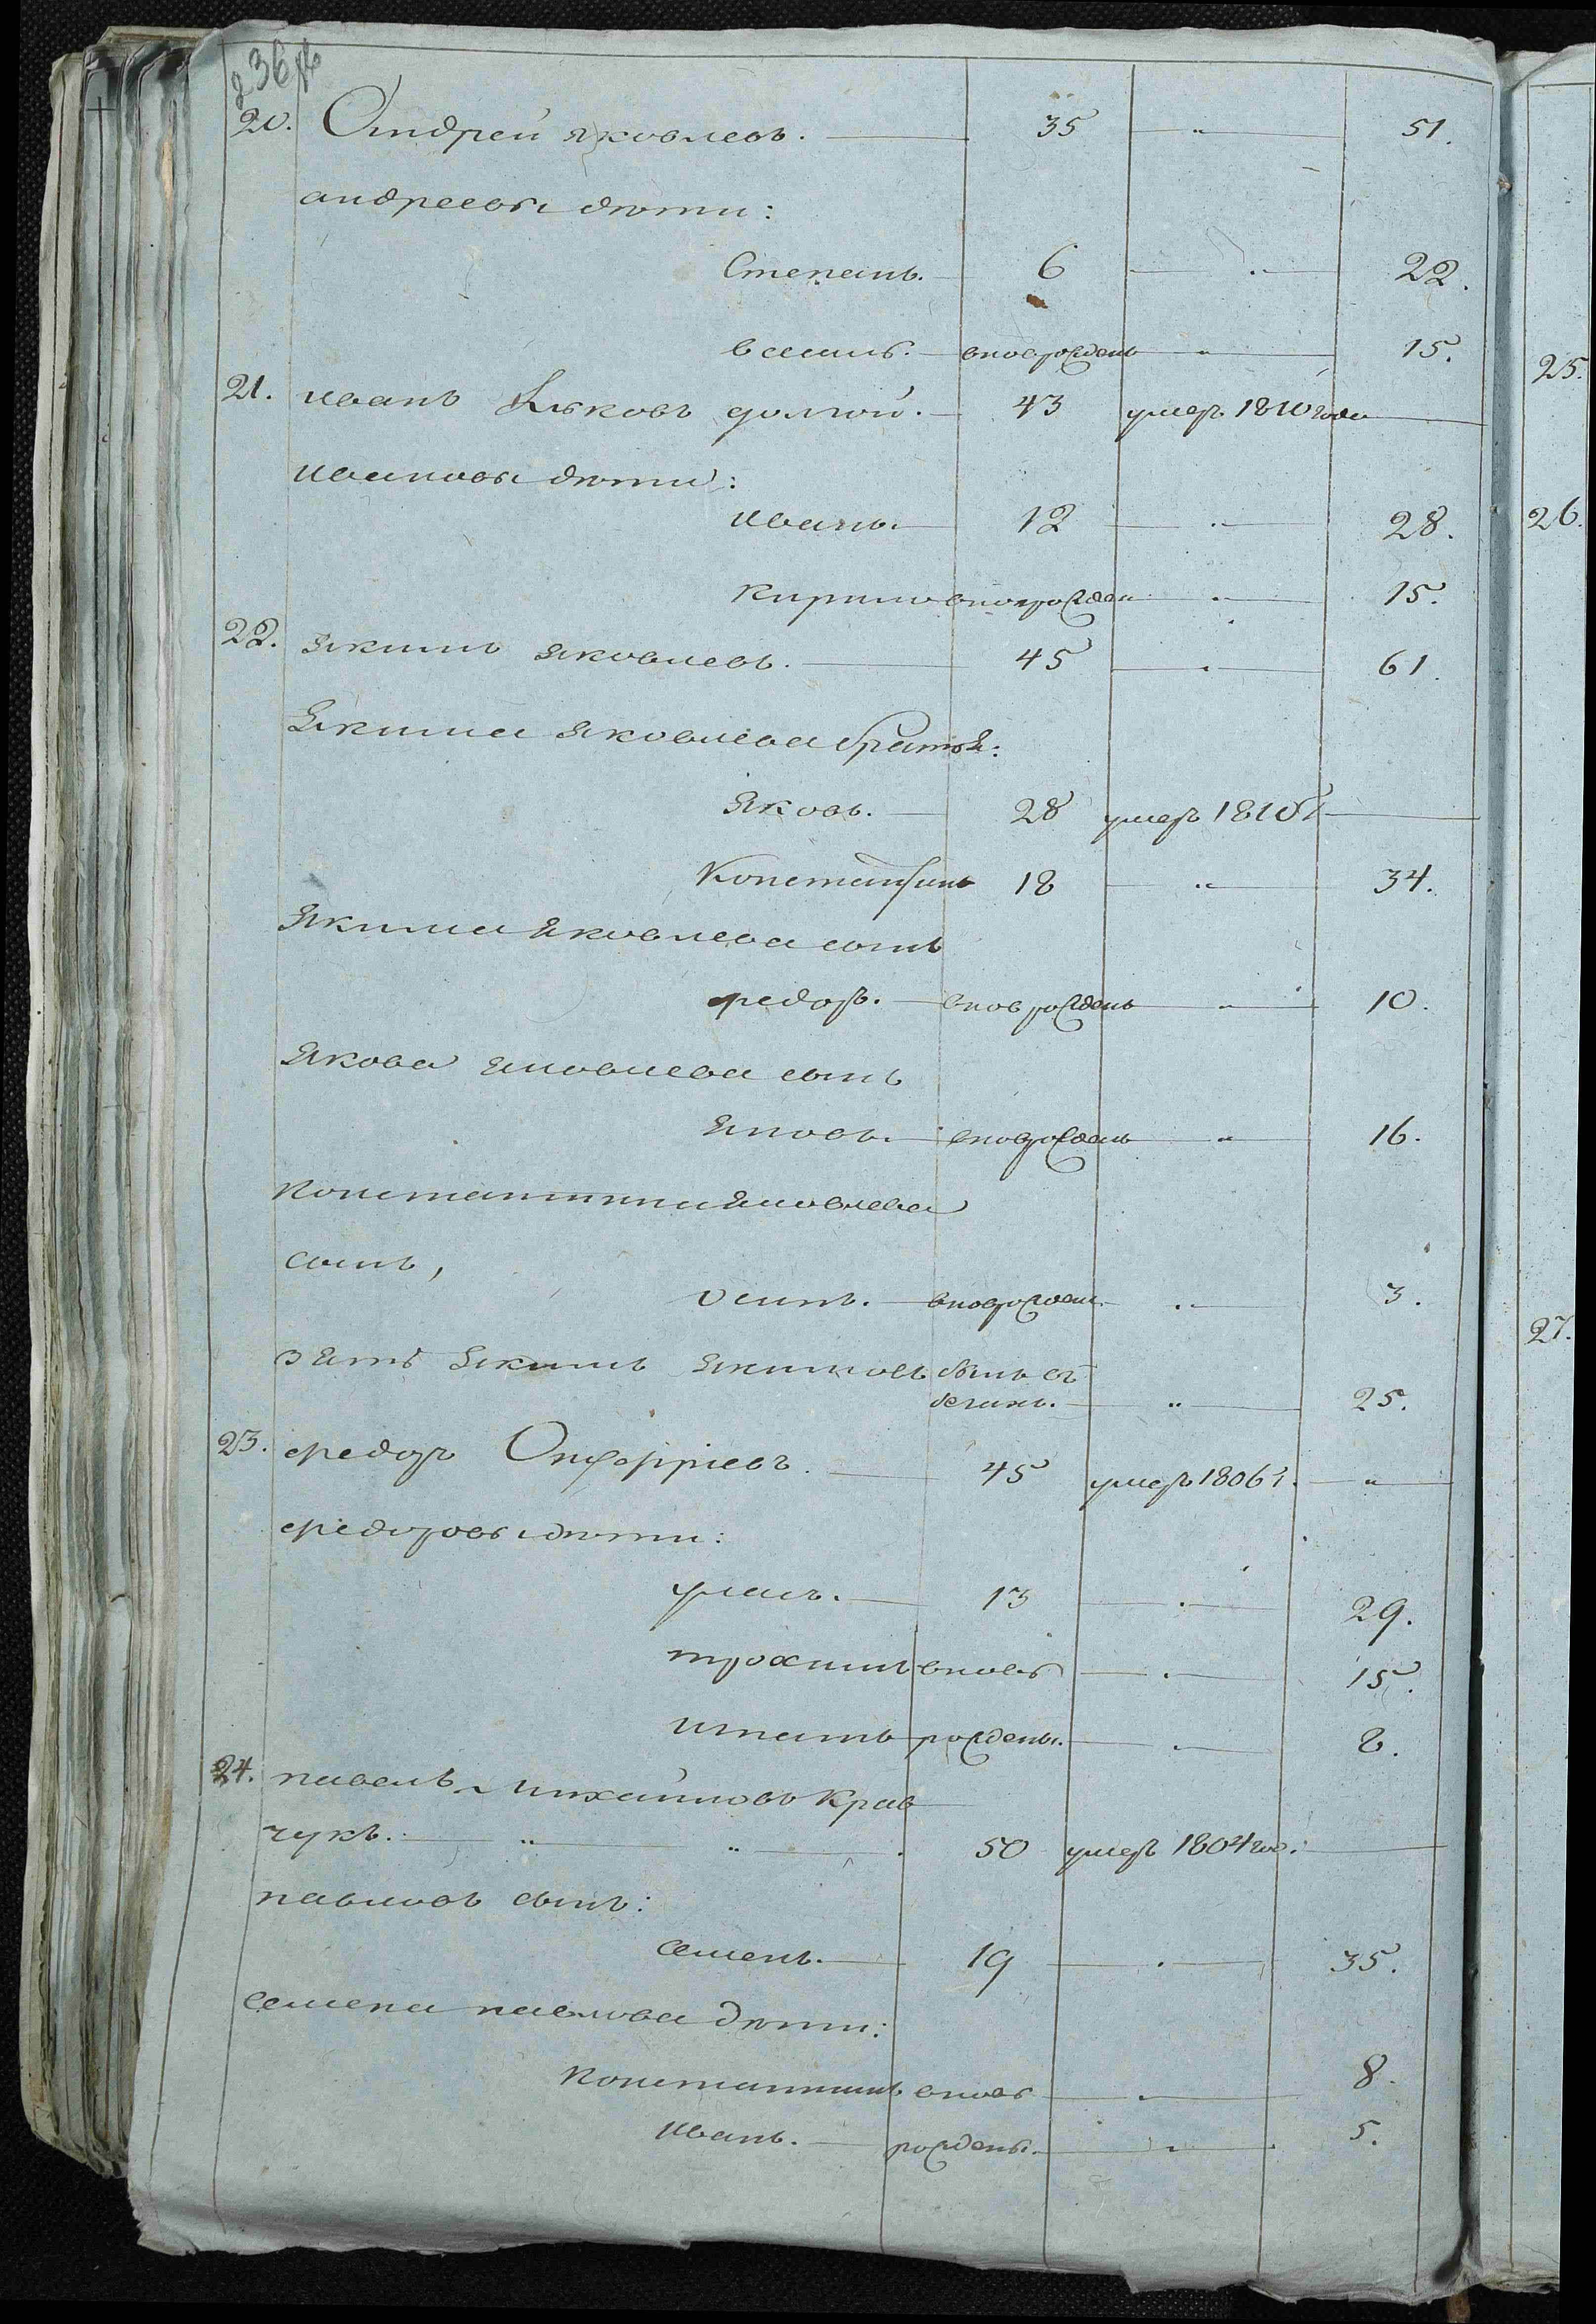 236
20. Андрей яковлевъ. 35 " 51.
андреевы дѣти:
Степанъ. 6 " 22.
василь. вноврожденъ " 15.
21. иванъ долгой. 43 умеръ 1810 года
ивановы дѣти:
иванъ. 12 " 28.
кирило вноврожден " 15.
22. якимъ яковлевъ. 45 " 61.
Якима яковлева братья:
яковъ. 28 умеръ 1810 г
Константинъ 18 " 34.
якима яковлева сынъ
федоръ. вноврожденъ " 10.
якова яковлева сынъ
яковъ. вноврожденъ " 16.
константина яковлева
сынъ,
осипъ. вноврожден. " 3.
зять якимъ якимовъ былъ въ
бегахъ. " 25.
23. федоръ 45 умеръ 1806 г. "
федоровы дѣти:
13 " 29.
трохимъ вновь " 15.
игнатъ рождены. " 8.
24. павелъ михайловъ Крав
чукъ. " " 50 умеръ 1804 го.
павловъ сынъ:
семенъ. 19 " 35.
семена павлова дѣти:
константинъ вновь " 8.
иванъ. рождены. " 5.
25.
26.
27.